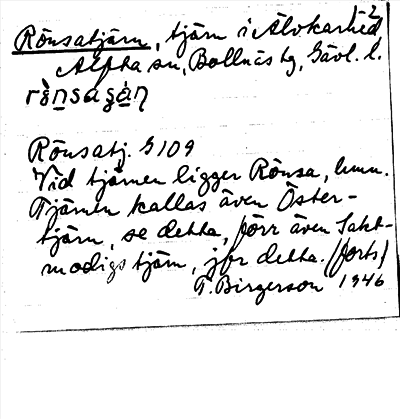 1-2
Rönsatjärn, tjärn i Älvkarhed,
Alfta sn, Bollnäs tg, Gävl. l.
Rönsatj. G109
Vid tjärnen ligger Rönsa, hmn.
Tjärnen kallas även Öster-
tjärn, se detta, förr även Sakt-
modigs tjärn, jfr detta. (forts)
T. Birgerson 1946